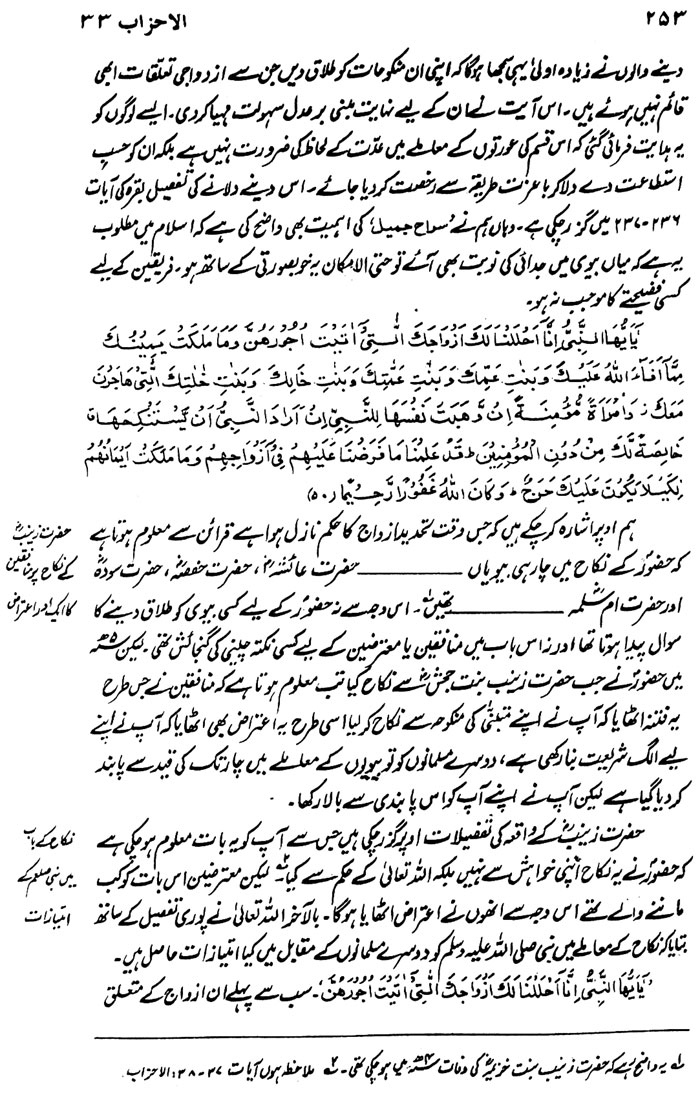 ۲۵۳
الاحزاب ۳۳
دینے والوں نے زیادہ اولیٰ یہی سمجھا ہوگا کہ اپنی ان منکوحات کو طلاق دیں جن سے ازدواجی تعلقات ابھی
قائم نہیں ہوئے ہیں۔ اس آیت نے ان کے لیے نہایت مبنی بر عدل سہولت مہیا کر دی۔ ایسے لوگوں کو
یہ ہدایت فرمائی گئی کہ اس قسم کی عورتوں کے معاملے میں عدّت کے لحاظ کی ضرورت نہیں ہے بلکہ ان کو حسبِ
استطاعت دے دلا کر با عزت طریقہ سے رخصت کر دیا جائے۔ اس دینے دلانے کی تفصیل بقرہ کی آیات
۲۳۶-۲۳۷ میں گزر چکی ہے۔ وہاں ہم نے ’سراح جمیل‘ کی اہمیت بھی واضح کی ہے کہ اسلام میں مطلوب
یہ ہے کہ میاں بیوی میں جدائی کی نوبت بھی آئے تو حتی الامکان یہ خوبصورتی کے ساتھ ہو۔ فریقین کے لیے
کسی فضیحتے کا موجب نہ ہو۔
يٰٓاَيُّهَا النَّبِيُّ اِنَّآ اَحْلَلْنَا لَكَ اَزْوَاجَكَ الّٰتِيْٓ اٰتَيْتَ اُجُوْرَهُنَّ وَمَا مَلَكَتْ يَمِيْنُكَ
مِمَّآ اَفَآءَ اللّٰهُ عَلَيْكَ وَبَنٰتِ عَمِّكَ وَبَنٰتِ عَمّٰتِكَ وَبَنٰتِ خَالِكَ وَبَنٰتِ خٰلٰتِكَ الّٰتِيْ هَاجَرْنَ
مَعَكَ ز وَامْرَاَةً مُّؤْمِنَةً اِنْ وَّهَبَتْ نَفْسَهَا لِلنَّبِيِّ اِنْ اَرَادَ النَّبِيُّ اَنْ يَّسْتَنْكِحَهَا ق
خَالِصَةً لَّكَ مِنْ دُوْنِ الْمُؤْمِنِيْنَ ط قَدْ عَلِمْنَا مَا فَرَضْنَا عَلَيْهِمْ فِيْٓ اَزْوَاجِهِمْ وَمَا مَلَكَتْ اَيْمَانُهُمْ
لِكَيْلَا يَكُوْنَ عَلَيْكَ حَرَجٌ ط وَكَانَ اللّٰهُ غَفُوْرًا رَّحِيْمًا (۵۰)
ہم اوپر اشارہ کر چکے ہیں کہ جس وقت تحدیدِ ازدواج کا حکم نازل ہوا ہے قرائن سے معلوم ہوتا ہے
کہ حضورؐ کے نکاح میں چار ہی بیویاں ــــــــ حضرت عائشہؓ، حضرت حفصہؓ، حضرت سودہؓ
اور حضرت ام سلمہؓ ــــــــ تھیں۱؎۔ اس وجہ سے نہ حضورؐ کے لیے کسی بیوی کو طلاق دینے کا
سوال پیدا ہوتا تھا اور نہ اس باب میں منافقین یا معترضین کے لیے کسی نکتہ چینی کی گنجائش تھی۔ لیکن ۵ھ
میں حضورؐ نے جب حضرت زینب بنت جحشؓ سے نکاح کیا تب معلوم ہوتا ہے کہ منافقین نے جس طرح
یہ فتنہ اٹھایا کہ آپ نے اپنے متبنّیٰ کی منکوحہ سے نکاح کر لیا اسی طرح یہ اعتراض بھی اٹھایا کہ آپ نے اپنے
لیے الگ شریعت بنا رکھی ہے، دوسرے مسلمانوں کو تو بیویوں کے معاملے میں چار تک کی قید سے پابند
کر دیا گیا ہے لیکن آپ نے اپنے آپ کو اس پابندی سے بالا رکھا۔
حضرت زینبؓ
کے نکاح پر منافقین
کا ایک اور اعتراض
حضرت زینبؓ کے واقعہ کی تفصیلات اوپر گزر چکی ہیں جس سے آپ کو یہ بات معلوم ہو چکی ہے
کہ حضورؐ نے یہ نکاح اپنی خواہش سے نہیں بلکہ اللہ تعالیٰ کے حکم سے کیا۲؎۔ لیکن معترضین اس بات کو کب
ماننے والے تھے اس وجہ سے انھوں نے اعتراض اٹھایا ہوگا۔ بالآخر اللہ تعالیٰ نے پوری تفصیل کے ساتھ
بتایا کہ نکاح کے معاملے میں نبی صلی اللہ علیہ وسلم کو دوسرے مسلمانوں کے مقابل میں کیا امتیازات حاصل ہیں۔
نکاح کے باب
میں نبی صلعم کے
امتیازات
’يٰٓاَيُّهَا النَّبِيُّ اِنَّآ اَحْلَلْنَا لَكَ اَزْوَاجَكَ الّٰتِيْٓ اٰتَيْتَ اُجُوْرَهُنَّ‘۔ سب سے پہلے ان ازواج کے متعلق
۱؎ یہ واضح رہے کہ حضرت زینب بنت خزیمہؓ کی وفات ۴ھ میں ہو چکی تھی۔ ۲؎ ملاحظہ ہوں آیات ۳۷-۳۸: الاحزاب۔